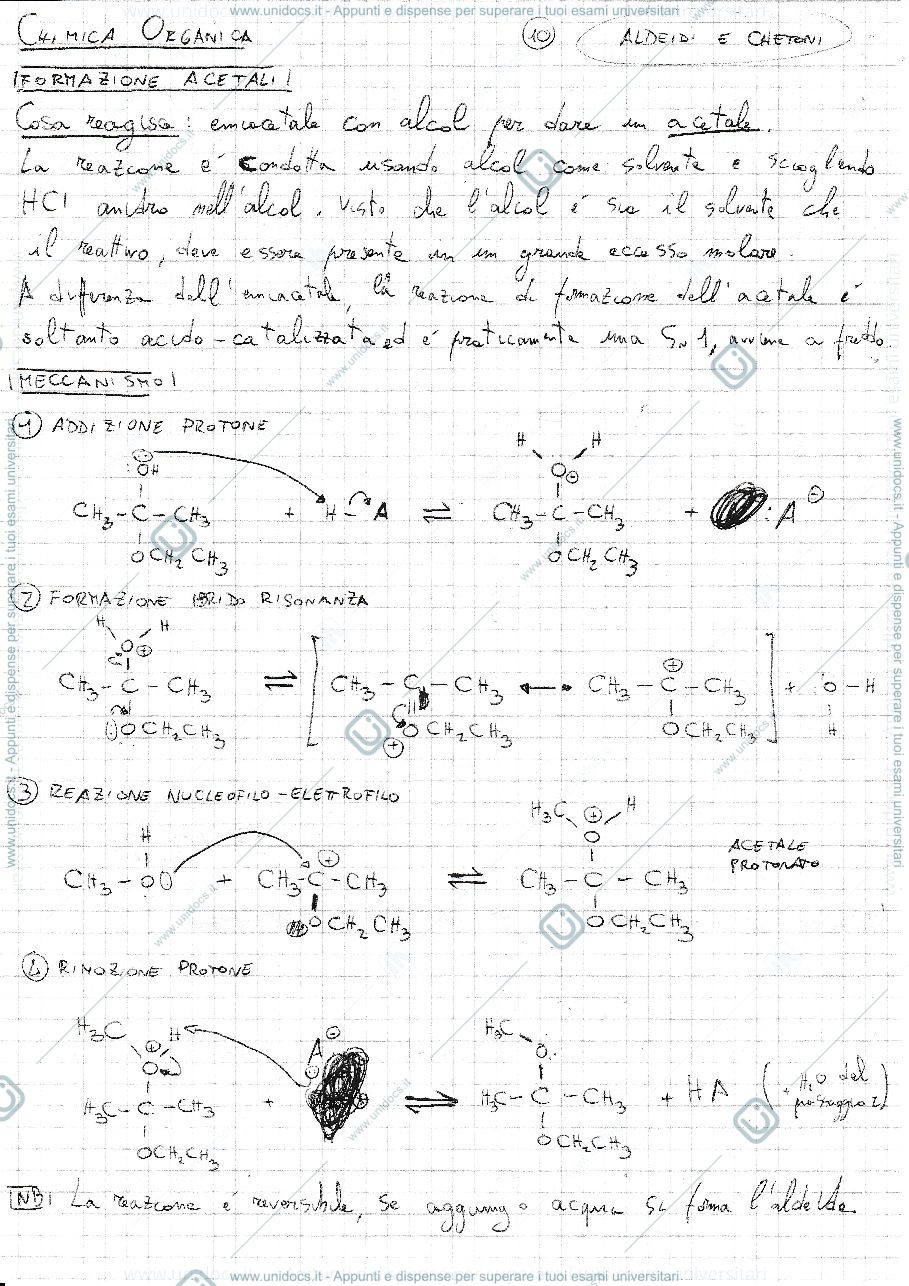 www.unidocs.it - Appunti e dispense per superare i tuoi esami universitari
CHIMICA ORGANICA
10
ALDEIDI E CHETONI
FORMAZIONE ACETALI
Cosa reagisce: emiacetale con alcol per dare un acetale.
La reazione é condotta usando alcol come solvente e sciogliendo
HCl anidro nell'alcol. Visto che l'alcol é sia il solvente che
il reattivo, deve essere presente in un grande eccesso molare.
A differenza dell'emiacetale, la reazione di formazione dell'acetale é
soltanto acido-catalizzata ed é praticamente una SN1, avviene a freddo.
MECCANISMO
1 ADDIZIONE PROTONE
H H
:OH O⊖
CH3-C-CH3 + H-A ⇌ CH3-C-CH3 + :A⊖
OCH2CH3 OCH2CH3
2 FORMAZIONE IBRIDO RISONANZA
H H
O⊕ ⊕
CH3-C-CH3 ⇌ [CH3-C-CH3 ↔ CH3-C-CH3] + :O-H
OCH2CH3 OCH2CH3 OCH2CH3 H
⊕
3 REAZIONE NUCLEOFILO-ELETTROFILO
H3C ⊕ H
H ⊕ O ACETALE
PROTONATO
CH3-O + CH3-C-CH3 ⇌ CH3-C-CH3
OCH2CH3 OCH2CH3
4 RIMOZIONE PROTONE
H3C H A⊖ H3C
⊕ O O:
H3C-C-CH3 + ⇌ H3C-C-CH3 + HA (+ H2O del
passaggio 2)
OCH2CH3 OCH2CH3
NB La reazione é reversibile, se aggiungo acqua si forma l'aldeide.
www.unidocs.it - Appunti e dispense per superare i tuoi esami universitari